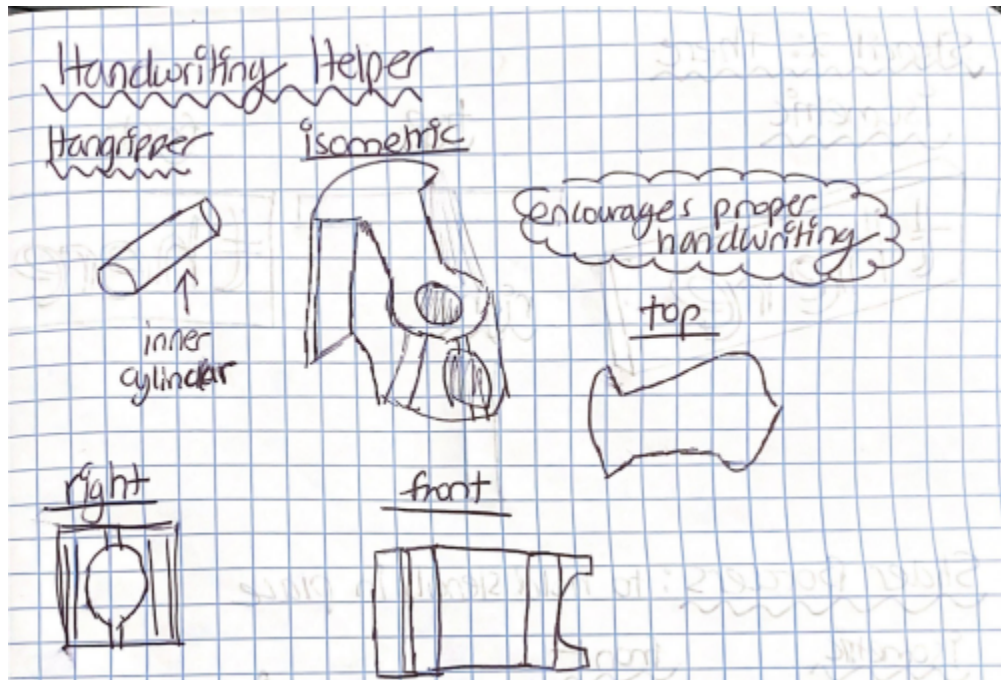 Handwriting Helper
Hangripper
isometric
encourages proper
handwriting
inner
cylindar
top
right
front